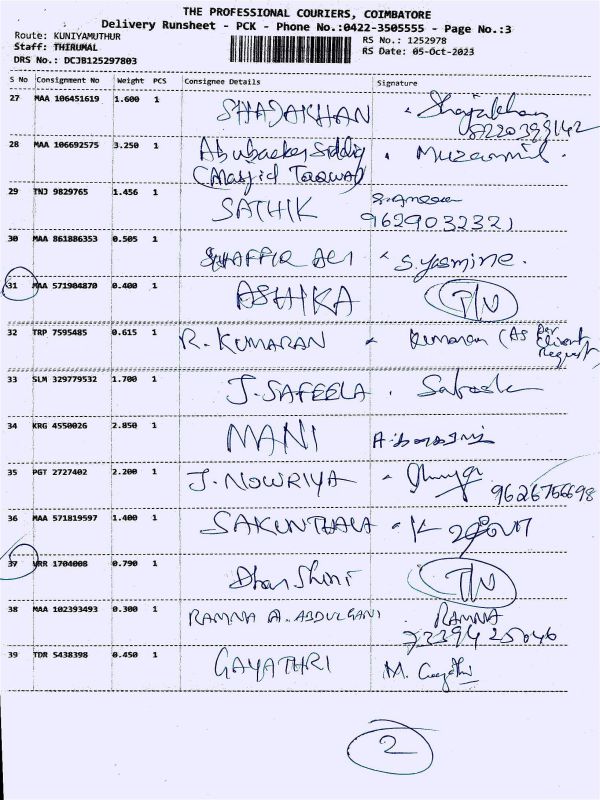 THE PROFESSIONAL COURIERS, COIMBATORE
Delivery Runsheet - PCK - Phone No.:0422-3505555 - Page No.:3
Route: KUNIYAMUTHUR RS No.: 1252978
Staff: THIRUMAL RS Date: 05-Oct-2023
DRS No.: DCJB125297803
S No Consignment No Weight PCS Consignee Details Signature
27 MAA 106451619 1.600 1 SHAJAKHAN Shajakhan
8220399142
28 MAA 106692575 3.250 1 Abubacker Siddiq Muzammil.
(Masjid Taqwa)
29 TNJ 9829765 1.456 1 SATHIK
9629032321
30 MAA 861886353 0.505 1 SHAFFIR ALI S. Yasmine.
31 MAA 571904870 0.400 1 ASHIKA
32 TRP 7595485 0.615 1 R. KUMARAN Kumaran (As per
Client
Request)
33 SLM 329779532 1.700 1 J. SAFEELA
34 KRG 4550026 2.850 1 MANI
35 PGT 2727402 2.200 1 J. NOWRIYA
9626766698
36 MAA 571819597 1.400 1 SAKUNTHALA
37 VRR 1704008 0.790 1 Dhar Shini
38 MAA 102393493 0.300 1 RAMNA A. ABDULGANI RAMNA
7339425046
39 TDR 5438398 0.450 1 GAYATHRI M. Gayathri
2